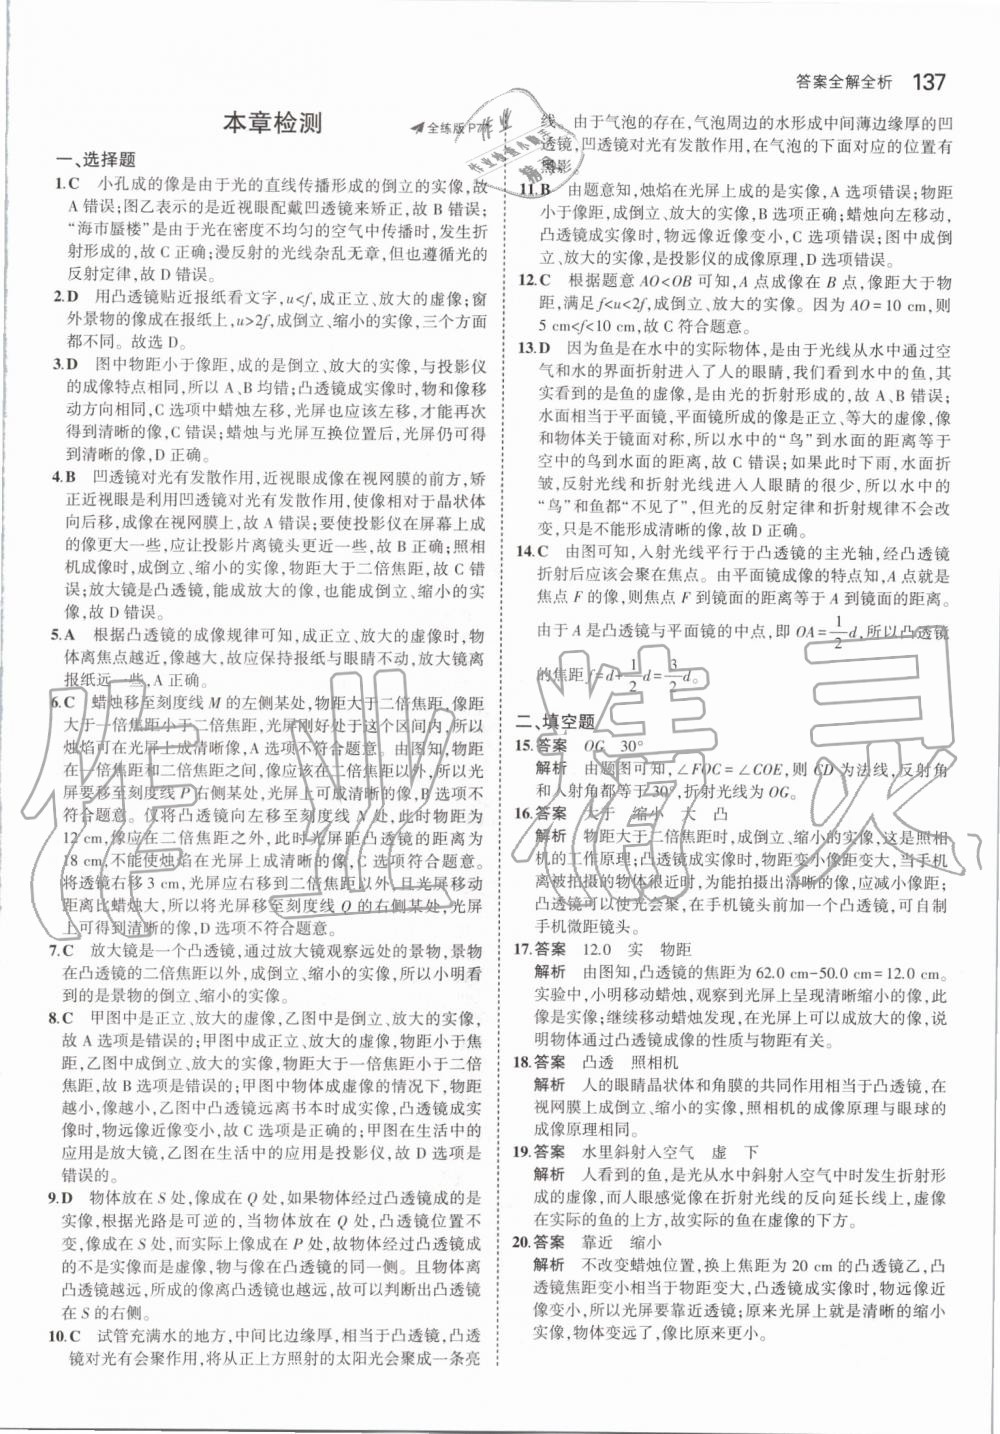 答案全解全析 137
本章检测
全练版P7
一、选择题
1.C 小孔成的像是由于光的直线传播形成的倒立的实像,故
A错误;图乙表示的是近视眼配戴凹透镜来矫正,故B错误;
“海市蜃楼”是由于光在密度不均匀的空气中传播时,发生折
射形成的,故C正确;漫反射的光线杂乱无章,但也遵循光的
反射定律,故D错误。
2.D 用凸透镜贴近报纸看文字,u<f,成正立、放大的虚像;窗
外景物的像成在报纸上,u>2f,成倒立、缩小的实像,三个方面
都不同。故选D。
3.D 图中物距小于像距,成的是倒立、放大的实像,与投影仪
的成像特点相同,所以A、B均错;凸透镜成实像时,物和像移
动方向相同,C选项中蜡烛左移,光屏也应该左移,才能再次
得到清晰的像,C错误;蜡烛与光屏互换位置后,光屏仍可得
到清晰的像,D正确。
4.B 凹透镜对光有发散作用,近视眼成像在视网膜的前方,矫
正近视眼是利用凹透镜对光有发散作用,使像相对于晶状体
向后移,成像在视网膜上,故A错误;要使投影仪在屏幕上成
的像更大一些,应让投影片离镜头更近一些,故B正确;照相
机成像时,成倒立、缩小的实像,物体应在二倍焦距以外,故C错
误;放大镜是凸透镜,能成放大的像,也能成倒立、缩小的实
像,故D错误。
5.A 根据凸透镜的成像规律可知,成正立、放大的虚像时,物
体离焦点越近,像越大,故应保持报纸与眼睛不动,放大镜离
报纸远一些,A正确。
6.C 蜡烛移至刻度线M的左侧某处,物距大于二倍焦距,像距
大于一倍焦距小于二倍焦距,光屏刚好处于这个区间内,所以
烛焰可在光屏上成清晰像,A选项不符合题意。由图可知,物体
在一倍焦距和二倍焦距之间,像应该在二倍焦距以外,所以光
屏要移至刻度线P右侧某处,光屏上可成清晰的像,B选项不
符合题意。仅将透镜向左移动3 cm至某处,此时物距为
12 cm,像应在二倍焦距之外,此时光屏距凸透镜的距离为
18 cm,不能使烛焰在光屏上成清晰的像,C选项符合题意。
将透镜右移3 cm,光屏应右移到二倍焦距以外,且光屏移动
距离比蜡烛大,所以将光屏移至刻度线Q的右侧某处,光屏
上可得到清晰的像,D选项不符合题意。
7.C 放大镜是一个凸透镜,通过放大镜观察远处的景物,景物
在凸透镜的二倍焦距以外,成倒立、缩小的实像,所以小明看
到的是景物的倒立、缩小的实像。
8.C 甲图中是正立、放大的虚像,乙图中是倒立、放大的实像,
故A选项是错误的;甲图中成正立、放大的虚像,物距小于焦
距,乙图中成倒立、放大的实像,物距大于一倍焦距小于二倍
焦距,故B选项是错误的;甲图中物体成虚像的情况下,物距
越小,像越小,乙图中凸透镜远离书本时成实像,凸透镜成实
像时,物远像近像变小,故C选项是正确的;甲图在生活中的
应用是放大镜,乙图在生活中的应用是投影仪,故D选项是
错误的。
9.D 物体放在S处,像成在Q处,如果物体经过凸透镜成的是
实像,根据光路是可逆的,当物体放在Q处,凸透镜位置不
变,像会成在S处,而实际上像成在P处,故物体经过凸透镜成
的不是实像而是虚像,物与像在凸透镜的同一侧。且物体离
凸透镜越远,所成的像离凸透镜也越远,故可以判断出凸透镜
在S的右侧。
10.C 试管充满水的地方,中间比边缘厚,相当于凸透镜,凸透
镜对光有会聚作用,将从正上方照射的太阳光会聚成一条亮
线。由于气泡的存在,气泡周边的水形成中间薄边缘厚的凹
透镜,凹透镜对光有发散作用,在气泡的下面对应的位置有
暗影。
11.B 由题意知,烛焰在光屏上成的是实像,A选项错误;物距
小于像距,成倒立、放大的实像,B选项正确;蜡烛向左移动,
凸透镜成实像时,物远像近像变小,C选项错误;图中成倒
立、放大的实像,是投影仪的成像原理,D选项错误。
12.C 根据题意AO<OB可知,A点成像在B点,像距大于物
距,满足f<u<2f,成倒立、放大的实像。因为AO=10 cm,则
5 cm<f<10 cm,故C符合题意。
13.D 因为鱼是在水中的实际物体,是由于光线从水中通过空
气和水的界面折射进入了人的眼睛,我们看到水中的鱼,其
实看到的是鱼的虚像,是由光的折射形成的,故A、B错误;
水面相当于平面镜,平面镜所成的像是正立、等大的虚像,像
和物体关于镜面对称,所以水中的“鸟”到水面的距离等于
空中的鸟到水面的距离,故C错误;如果此时下雨,水面褶
皱,反射光线和折射光线进入人眼睛的很少,所以水中的
“鸟”和鱼都“不见了”,但光的反射定律和折射规律不会改
变,只是不能形成清晰的像,故D正确。
14.C 由图可知,入射光线平行于凸透镜的主光轴,经凸透镜
折射后应该会聚在焦点。由平面镜成像的特点知,A点就是
焦点F的像,则F到镜面的距离等于A到镜面的距离。
由于A是凸透镜与平面镜的中点,即OA=1/2d,所以凸透镜
的焦距f=d+1/2d=3/2d。
二、填空题
15.答案 OG 30°
解析 由题图可知,∠FOC=∠COE,则CD为法线,反射角
和入射角都等于30°,折射光线为OG。
16.答案 大于 缩小 大 凸
解析 物距大于二倍焦距时,成倒立、缩小的实像,这是照相
机的工作原理;凸透镜成实像时,物距变小像距变大,当手机
离被拍摄的物体很近时,为能拍摄出清晰的像,应减小像距;
凸透镜可以使光会聚,在手机镜头前加一个凸透镜,可自制
手机微距镜头。
17.答案 12.0 实 物距
解析 由图知,凸透镜的焦距为62.0 cm-50.0 cm=12.0 cm。
实验中,小明移动蜡烛,观察到光屏上呈现清晰缩小的像,此
像是实像;继续移动蜡烛发现,在光屏上可以成放大的像,说
明物体通过凸透镜成像的性质与物距有关。
18.答案 凸透 照相机
解析 人的眼睛晶状体和角膜的共同作用相当于凸透镜,在
视网膜上成倒立、缩小的实像,照相机的成像原理与眼球的
成像原理相同。
19.答案 水里斜射入空气 虚 下
解析 人看到的鱼,是光从水中斜射入空气中时发生折射形
成的虚像,而人眼感觉像在折射光线的反向延长线上,虚像
在实际的鱼的上方,故实际的鱼在虚像的下方。
20.答案 靠近 缩小
解析 不改变蜡烛位置,换上焦距为20 cm的凸透镜乙,凸
透镜焦距变小相当于物距变大,凸透镜成实像时,物远像近
像变小,所以光屏要靠近透镜;原来光屏上就是清晰的缩小
实像,物体变远了,像比原来更小。
作业精灵